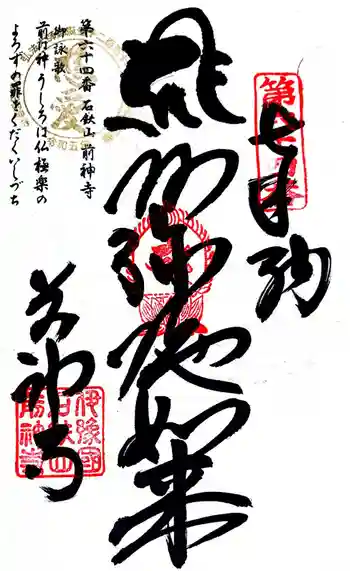 奉納
阿弥陀如来
前神寺
第六十四番 石鈇山 前神寺
御詠歌
前は神うしろは仏極楽の
よろずの罪をくだくいしづち
伊豫國
石鈇山
前神寺